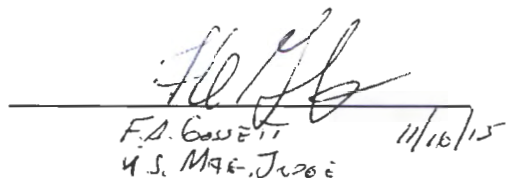 F.A. Gossett 11/16/15
U.S. Mag. Judge